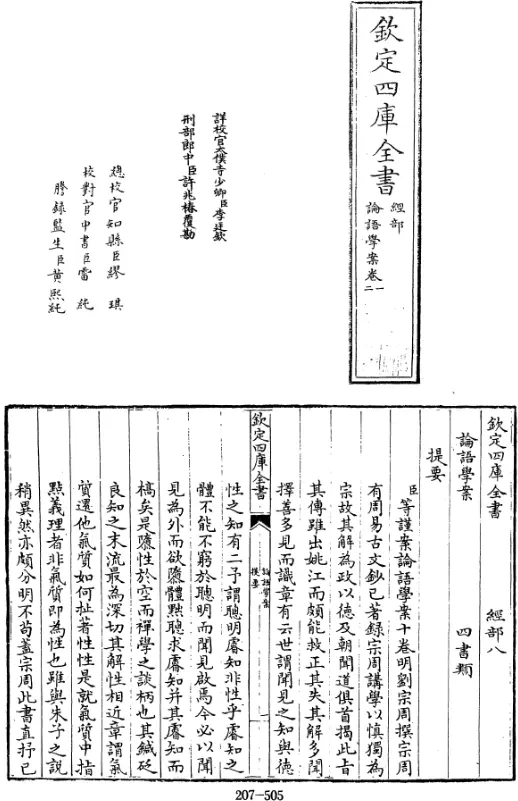 欽定四庫全書
經部
論語學案卷一
二
詳校官太僕寺少卿臣李廷欽
刑部郎中臣許兆椿覆勘
總校官知縣臣繆琪
校對官中書臣雷純
謄錄監生臣黃熙純
欽定四庫全書
經部八
論語學案
四書類
提要
臣等謹案論語學案十卷明劉宗周撰宗周
有周易古文鈔已著錄宗周講學以慎獨為
宗故其解為政以德及朝聞道俱首揭此旨
其傳雖出姚江而頗能救正其失其解多聞
擇善多見而識章有云世謂聞見之知與德
欽定四庫全書
論語學案
提要
一
性之知有二予謂聰明睿知非性乎睿知之
體不能不窮於聰明而聞見啟焉今必以聞
見為外而欲隳體黜聰求睿知并其睿知而
槁矣是隳性於空而禪學之談柄也其鍼砭
良知之末流最為深切其解性相近章謂氣
質還他氣質如何扯著性性是就氣質中指
點義理者非氣質即為性也雖與朱子之說
稍異然亦頗分明不苟蓋宗周此書直抒己
207-505